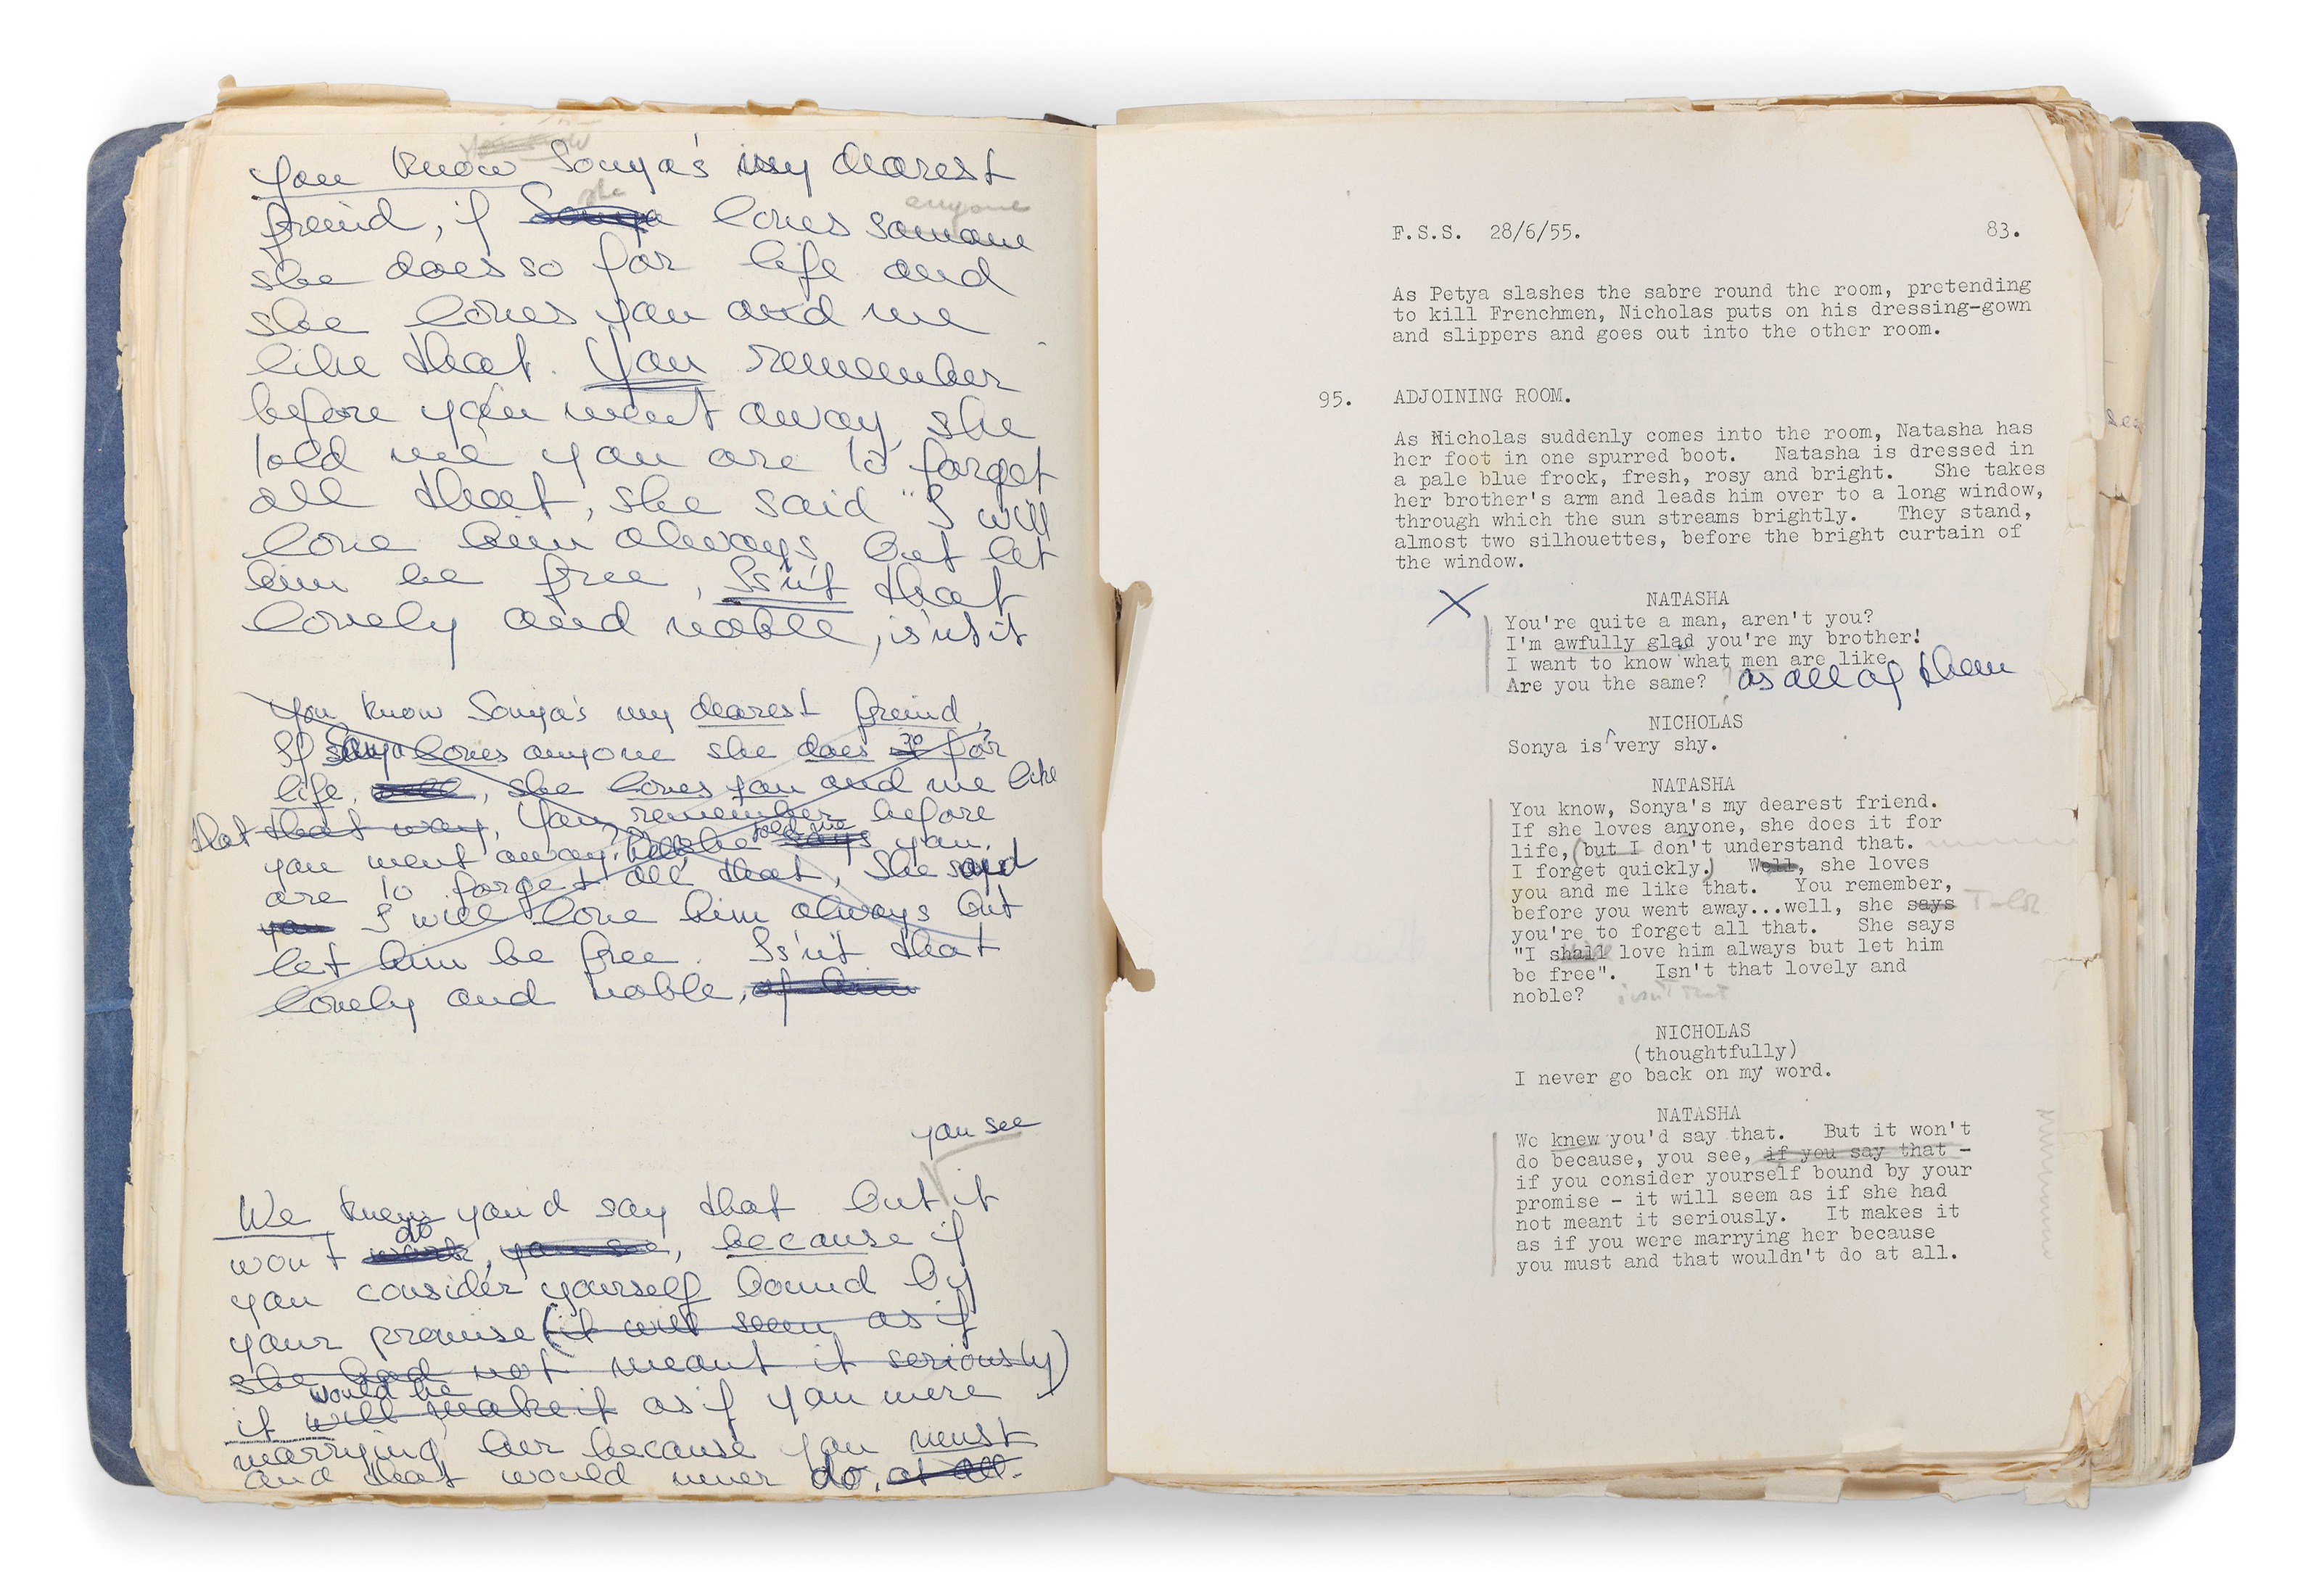 You know Sonya's my dearest
she anyone
freind, if Sonya loves someone
she does so for life and
she loves you and me
like that. You remember
before you went away, she
told me you are to forget
all that, she said "I will
love him always but let
him be free, Is'nt that
lovely and noble, is'nt it
You know Sonya's my dearest freind,
If Sonya loves anyone she does so for
life, well, she loves you and me like
that that way, You remember before
you went away, she told me says you
are to forget all that, She said
you I will love him always but
let him be free. Is'nt that
lovely and noble, of him
you see
We knew you'd say that but it
do
won't work, you see, because if
you consider yourself bound by
your promise (it will seem as if
she had not meant it seriously)
would be
it will make it as if you were
marrying her because you must
and that would never do, at all.
F.S.S. 28/6/55. 83.
As Petya slashes the sabre round the room, pretending
to kill Frenchmen, Nicholas puts on his dressing-gown
and slippers and goes out into the other room.
95. ADJOINING ROOM.
As Nicholas suddenly comes into the room, Natasha has
her foot in one spurred boot. Natasha is dressed in
a pale blue frock, fresh, rosy and bright. She takes
her brother's arm and leads him over to a long window,
through which the sun streams brightly. They stand,
almost two silhouettes, before the bright curtain of
the window.
X NATASHA
You're quite a man, aren't you?
I'm awfully glad you're my brother!
I want to know what men are like.
Are you the same? as all of them
NICHOLAS
Sonya is very shy.
NATASHA
You know, Sonya's my dearest friend.
If she loves anyone, she does it for
life, (but I don't understand that.
I forget quickly.) Well, she loves
you and me like that. You remember,
before you went away...well, she says Told
you're to forget all that. She says
"I shall love him always but let him
be free". Isn't that lovely and
noble? isn't that
NICHOLAS
(thoughtfully)
I never go back on my word.
NATASHA
We knew you'd say that. But it won't
do because, you see, if you say that -
if you consider yourself bound by your
promise - it will seem as if she had
not meant it seriously. It makes it
as if you were marrying her because
you must and that wouldn't do at all.